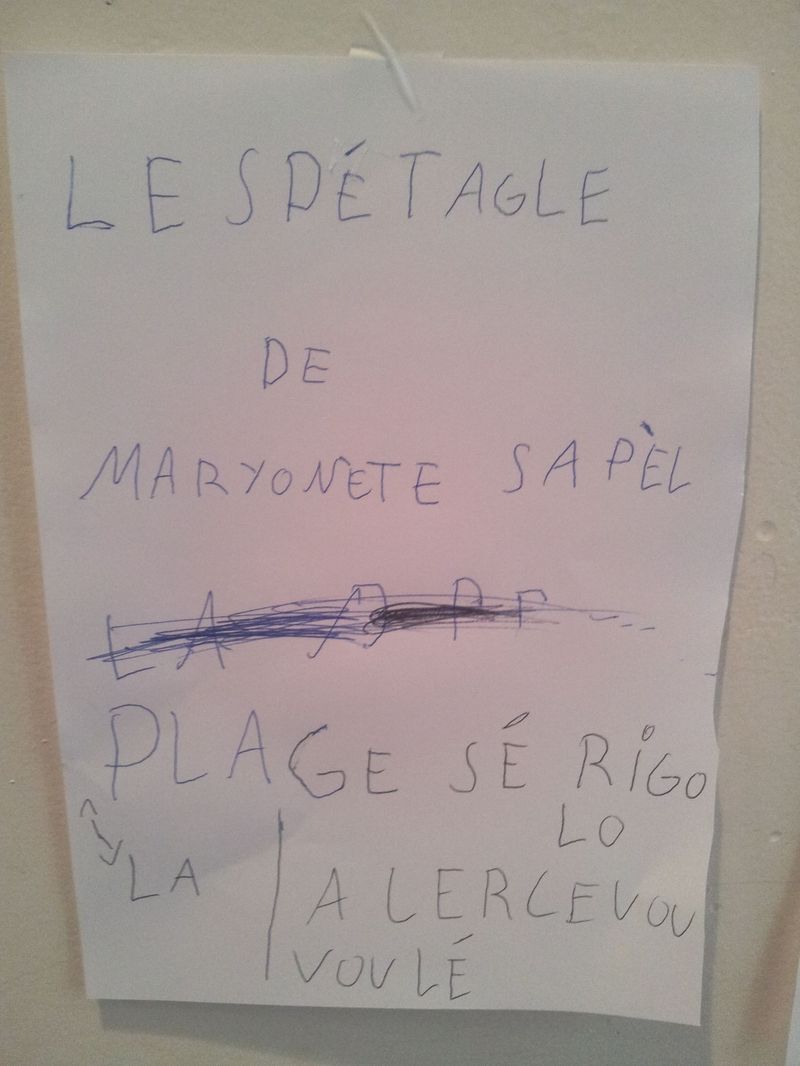 LE SPÉTAGLE
DE
MARYONETE SAPÈL
PLAGE SÉ RIGO
LO
LA
A LERCEVOU
VOULÉ